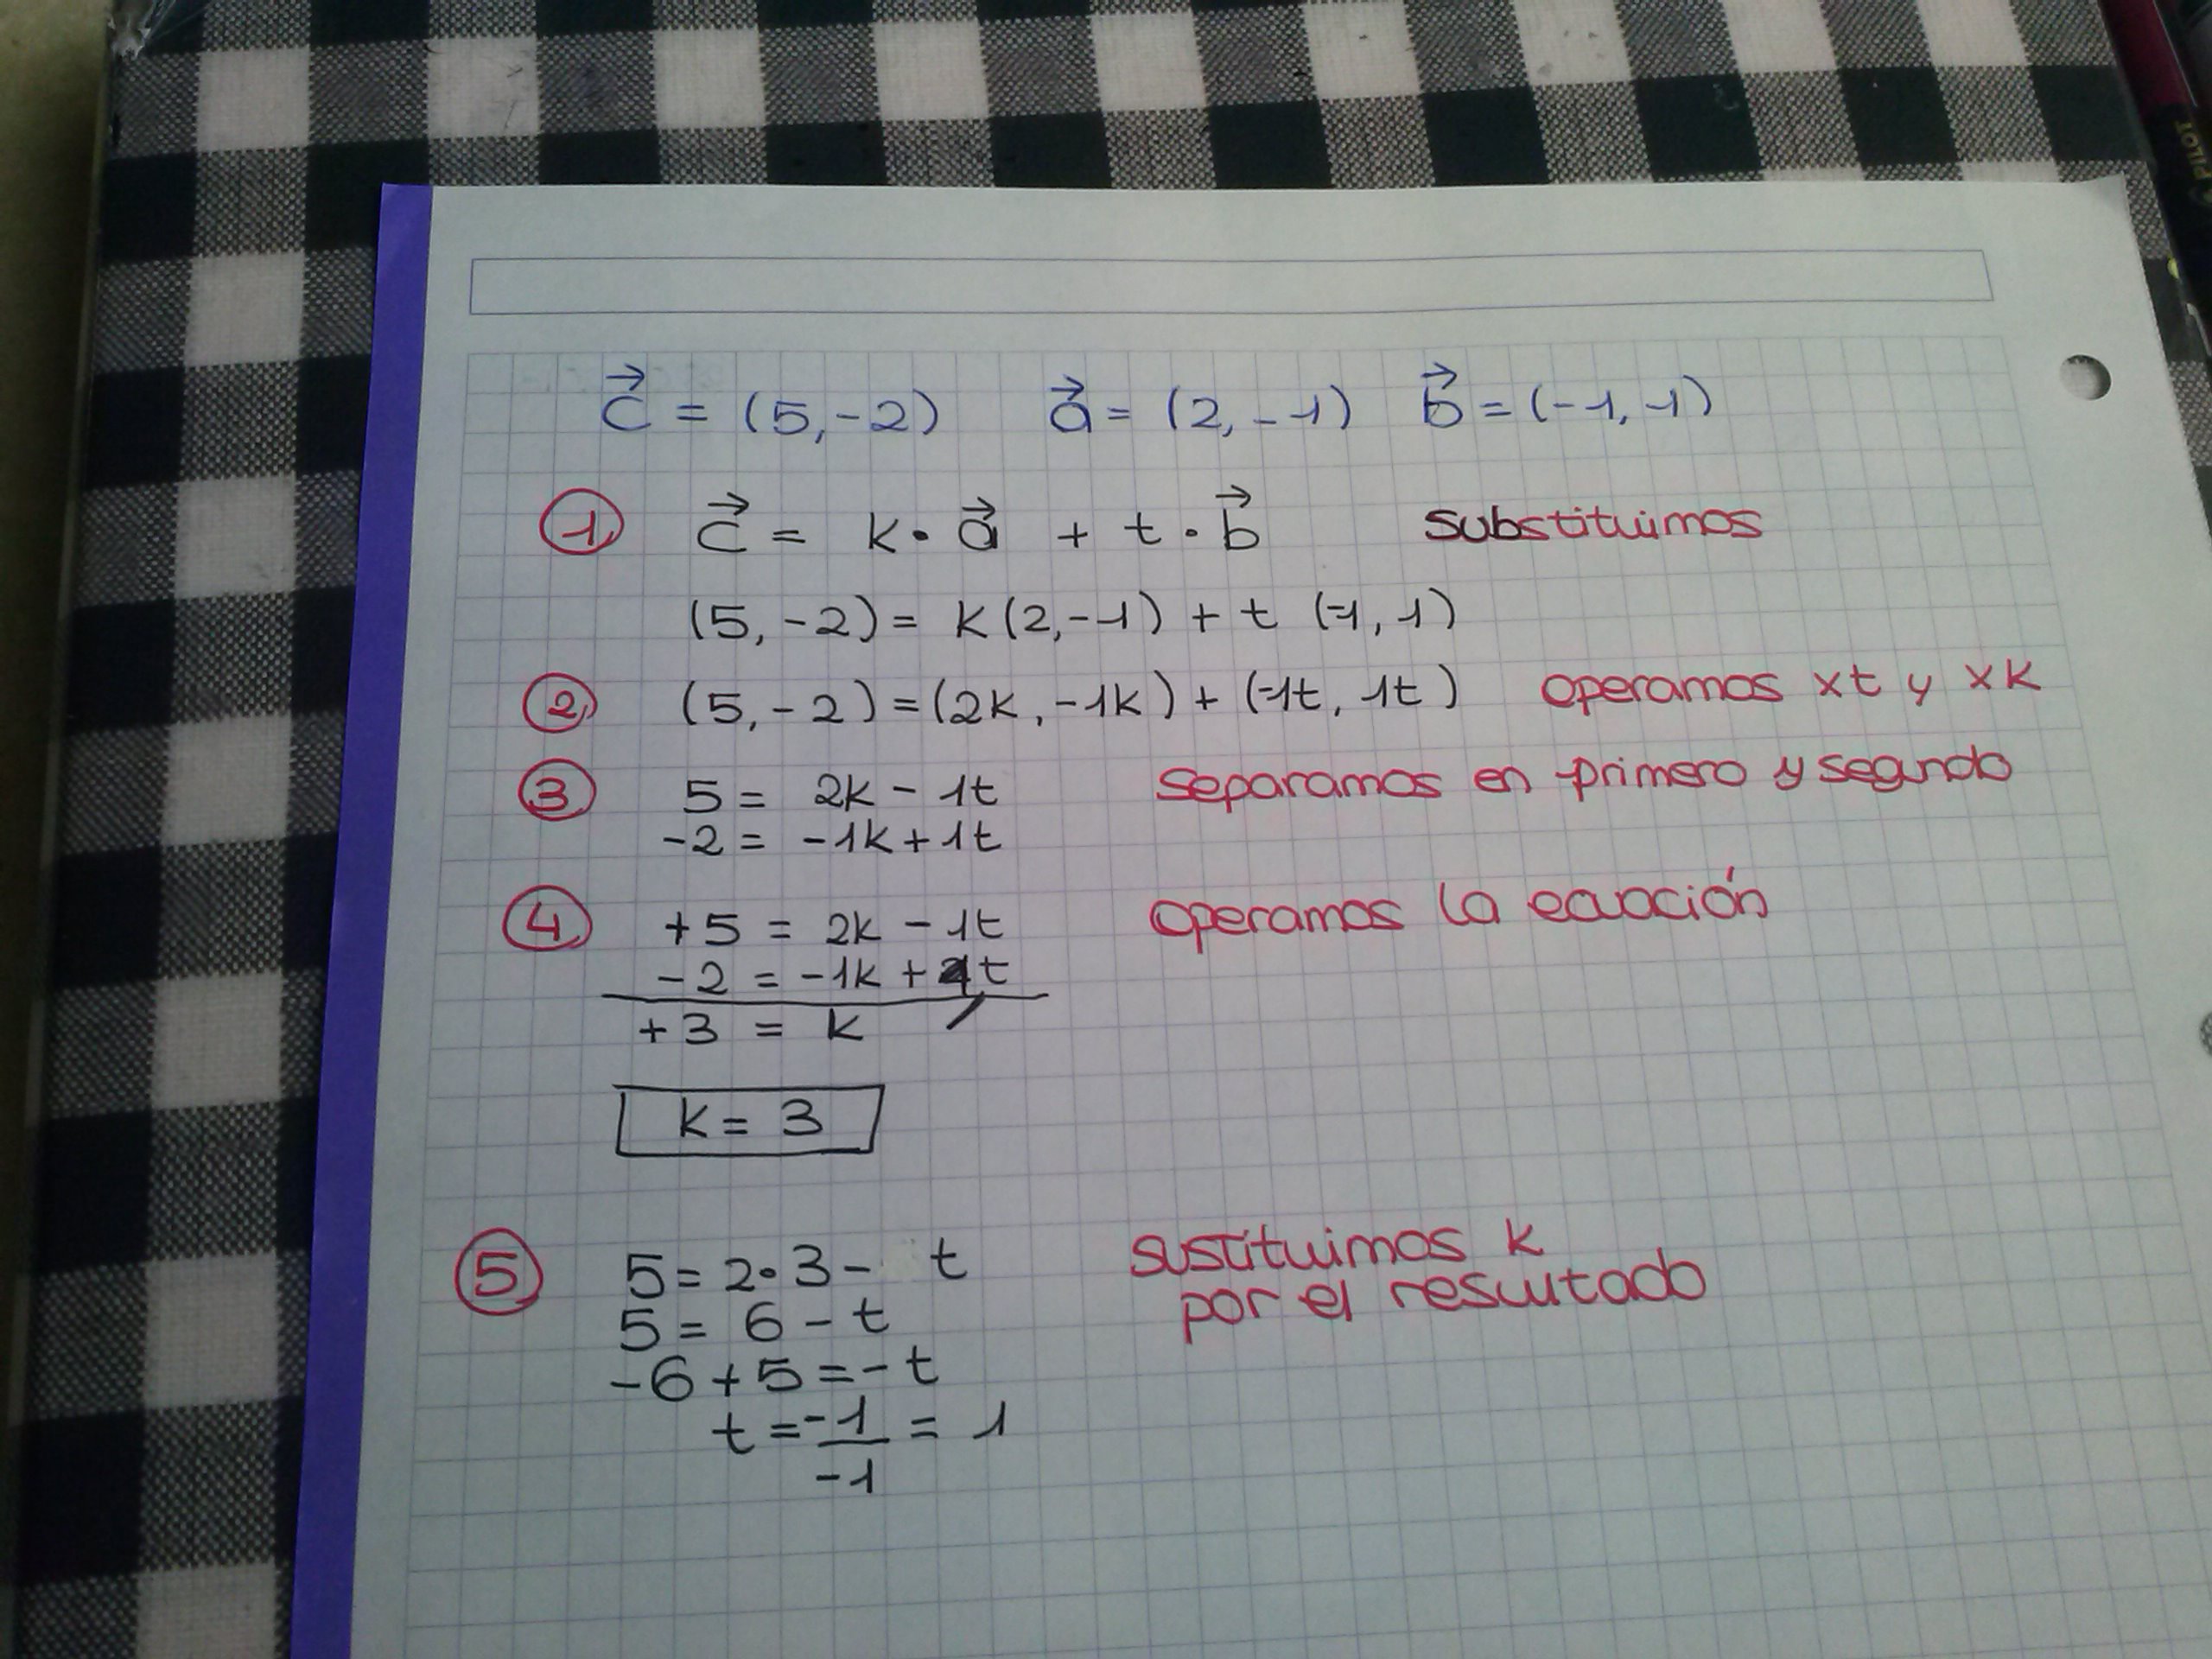 c⃗ = (5,-2) a⃗ = (2,-1) b⃗ = (-1,-1)
① c⃗ = k· a⃗ + t · b⃗ substituimos
(5,-2) = k(2,-1) + t (-1, 1)
② (5,-2) = (2k, -1k) + (-1t, 1t) operamos xt y xk
③ 5 = 2k - 1t separamos en primero y segundo
-2 = -1k + 1t
④ +5 = 2k - 1t operamos la ecuación
-2 = -1k + 1t
+3 = k /
k = 3
⑤ 5 = 2·3 - t sustituimos k
5 = 6 - t por el resultado
-6 + 5 = - t
t = -1/-1 = 1
PILOT